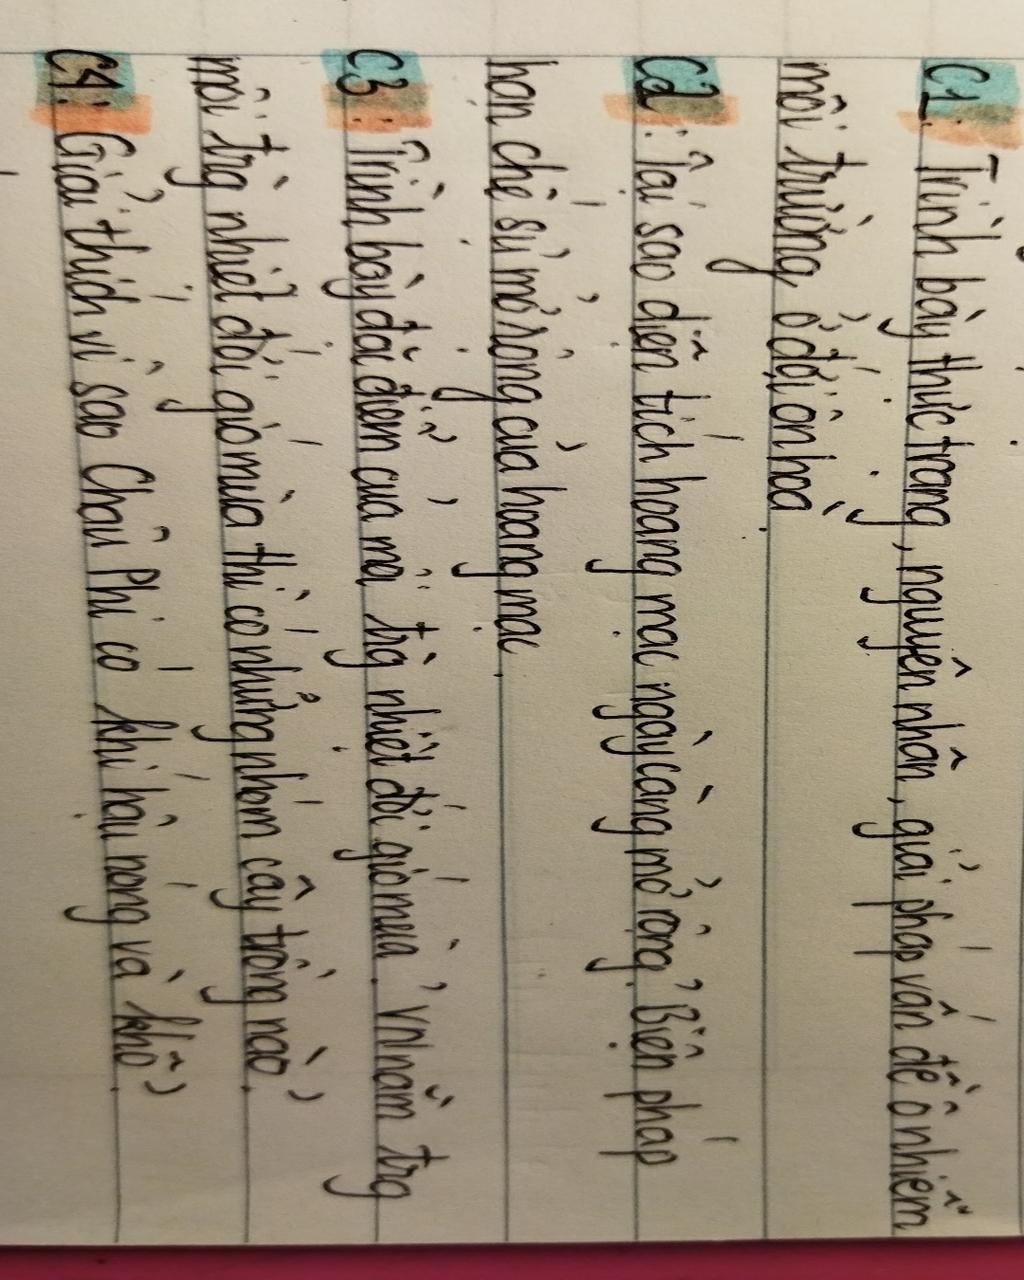 C1: Trình bày thực trạng, nguyên nhân, giải pháp vấn đề ô nhiễm
môi trường ở đới ôn hoà.
C2: Tại sao diện tích hoang mạc ngày càng mở rộng? Biện pháp
hạn chế sử mở rộng của hoang mạc.
C3: Trình bày đặc điểm của môi trg nhiệt đới gió mùa? VN nằm trg
môi trg nhiệt đới gió mùa thì có những nhóm cây trồng nào?
C4: Giải thích vì sao Châu Phi có khí hậu nóng và khô?